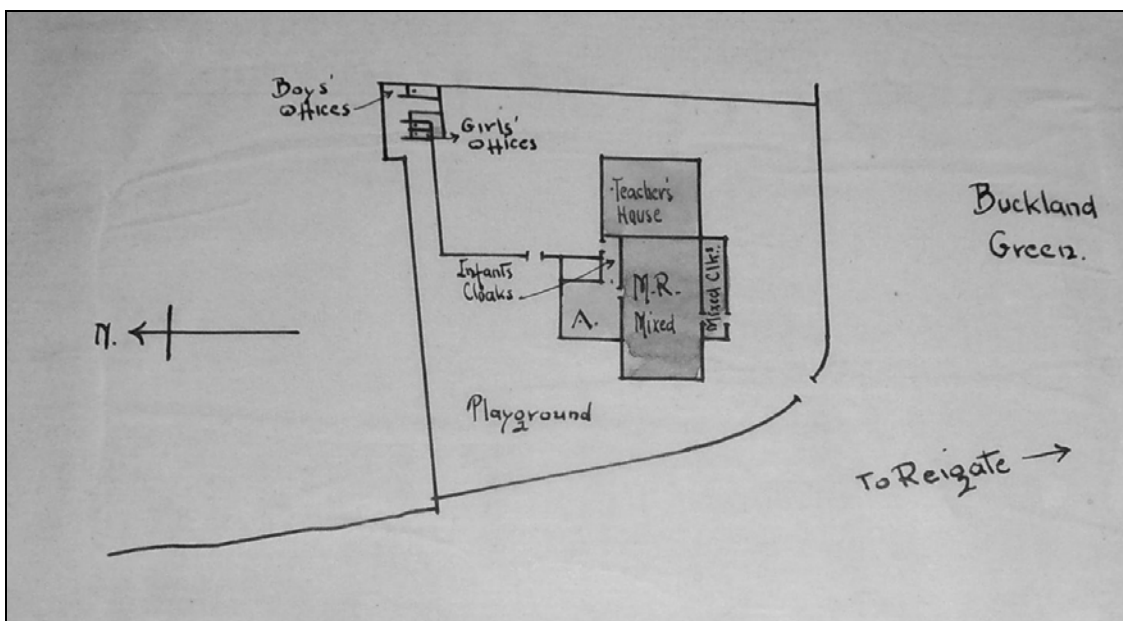 Boys'
Offices
Girls'
Offices
Teacher's
House
Buckland
Green.
Infants
Cloaks
M.R.
Mixed
Mixed Clks.
A.
N.
Playground
To Reigate